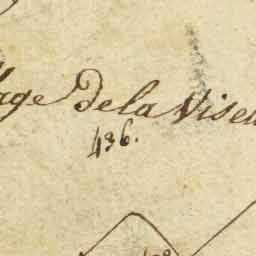 age de la Viseu
436.